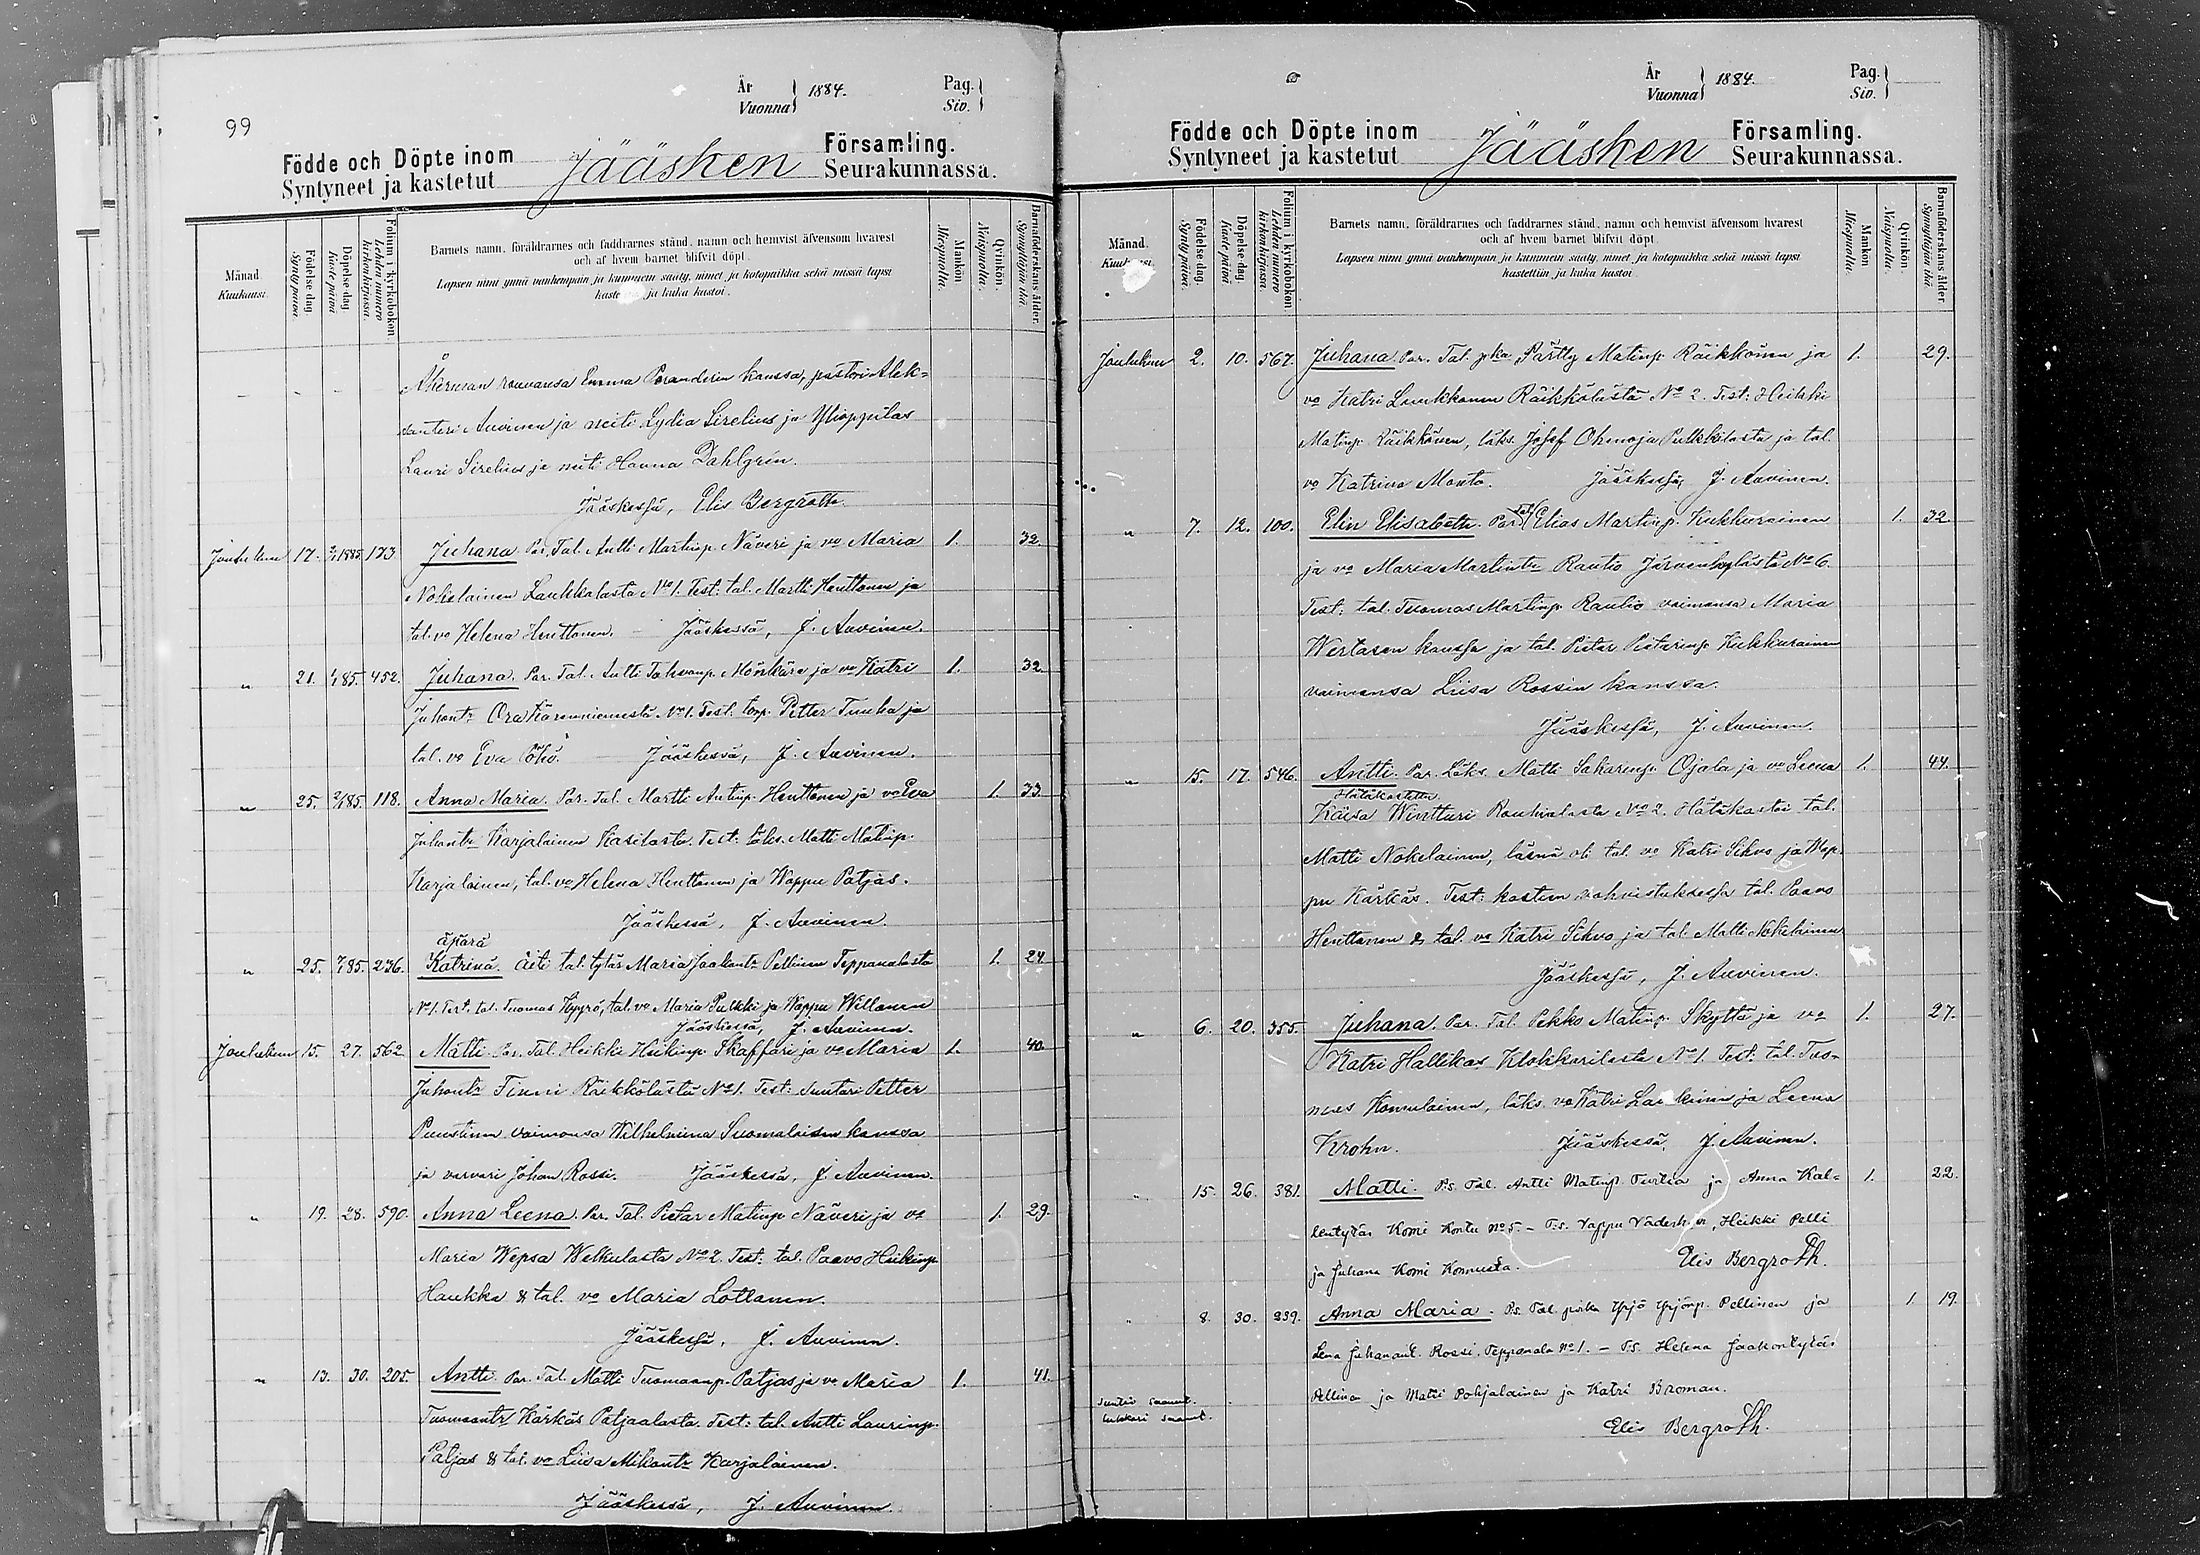 99
År Vuonna 1884. Pag. Siv.
Födde och Döpte inom Jääsken Församling.
Syntyneet ja kastetut Seurakunnassa.
Månad. Kuukausi.
Födelse dag. Synty päivä.
Döpelse dag. Kaste päivä
Folium i kyrkoboken. Lehden numero kirkonkirjassa.
Barnets namn, föräldrarnes och faddrarnes stånd, namn och hemvist äfvensom hvarest
och af hvem barnet blifvit döpt.
Lapsen nimi ynnä vanhempain ja kummein sääty, nimet ja kotopaikka sekä missä lapsi
ja kuka kastoi.
Mankön. Miespuolta.
Qvinkön. Naispuolta.
Barnaföderskans ålder. Synnyttäjän ikä.
Åkerman rouvansa Emma Peranderin kanssa, pastori Alek=
santeri Auvinen ja neiti Lydia Sirelius ja Ylioppilas
Lauri Sirelius ja neiti Hanna Dahlgrén.
Jääskessä, Elis Bergroth.
Joulukuu 17. 2/1 1885 173 Juhana Par. Tal. Antti Martinp. Näveri ja vo Maria 1. 32.
Nokelainen Laukkalasta No 1. Test: tal. Martti Henttonen ja
tal. vo Helena Henttonen. Jääskessä, J. Auvinen.
" 21. 85. 452. Juhana. Par. Tal. Antti Tahvanp. Mönkäre ja vo Katri 1. 32.
Juhontr Ora Kärenniemestä No 1. Test. torp. Petter Tiuka ja
tal. vo Eva Pöhö. Jääskessä, J. Auvinen.
" 25. 85. 118. Anna Maria. Par. Tal. Martti Antinp. Henttonen ja vo Eva 1. 33.
Juhontr Karjalainen Kasilasta. Test: läks. Matti Matinp.
Karjalainen, tal. vo Helena Henttonen ja Wappu Patjas.
Jääskessä, J. Auvinen.
äpärä
" 25. 7/85. 236. Katrina. Äiti tal. tytär Maria Jaakontr Pellinen Teppanalasta 1. 24.
No 1. Test. tal. Tuomas Kyyrö, tal. vo Maria Pulkki ja Wappu Willanen
Jääskessä, J. Auvinen.
Joulukuu 15. 27. 562. Matti Par. Tal. Heikki Heikinp. Skaffari ja vo Maria 1. 40.
Juhontr Tinni Räikkölästä No 1. Test: suntari Petter
Puustinen vaimonsa Wilhelmina Suomalaisen kanssa
ja varvari Johan Rossi. Jääskessä, J. Auvinen.
" 19. 28. 590. Anna Leena. Par. Tal. Pietar Matinp. Näveri ja vo 1. 29.
Maria Wepsa Welkulasta No 2. Test: tal. Paavo Heikinp.
Haukka & tal. vo Maria Lottanen.
Jääskessä, J. Auvinen
" 13. 30. 205. Antti. Par. Tal. Matti Tuomaanp. Patjas ja vo Maria 1. 41.
Tuomaantr Kärkäs Patjaalasta. Test: tal. Antti Laurinp.
Patjas & tal. vo Liisa Mikontr Karjalainen.
Jääskessä, J. Auvinen
År Vuonna 1884. Pag. Siv.
Födde och Döpte inom Jääsken Församling.
Syntyneet ja kastetut Seurakunnassa.
Månad. Kuukausi.
Födelse dag. Synty päivä.
Döpelse dag. Kaste päivä.
Folium i kyrkoboken. Lehden numero kirkonkirjassa.
Barnets namn, föräldrarnes och faddrarnes stånd, namn och hemvist äfvensom hvarest
och af hvem barnet blifvit döpt.
Lapsen nimi ynnä vanhempain ja kummein sääty, nimet ja kotopaikka sekä missä lapsi
kastettiin ja kuka kastoi.
Mankön. Miespuolta.
Qvinkön. Naispuolta.
Barnaföderskans ålder. Synnyttäjän ikä.
Joulukuu 2. 10. 567. Juhana. Par. Tal. pka Pärtty Matinp. Räikkönen ja 1. 29.
vo Katri Laukkanen Räikkölästä No 2. Test: Heikki
Matinp. Räikkönen, läks. Josef Ohmoja Pulkkilasta ja tal.
vo Katrina Monto. Jääskessä, J. Auvinen.
" 7. 12. 100. Elin Elisabeth. Par. Tal. Elias Martinp. Kukkurainen 1. 32
ja vo Maria Martintr Rautio Järvenkylästä No 6
Test: tal. Tuomas Martinp. Rautio vaimonsa Maria
Wertasen kanssa ja tal. Pietar Pietarinp. Kukkurainen
vaimonsa Liisa Rossin kanssa.
Jääskessä, J. Auvinen.
" 15. 17. 546. Antti. Par. Läks. Matti Sakarinp. Ojala ja vo Leena 1. 44.
Hätäkastettu
Kaisa Wintturi Rouhialasta No 2. Hätäkastoi tal.
Matti Nokelainen, läsnä oli tal. vo Katri Sikvo ja Wap-
pu Kärkäs. Test: kasteen vahvistuksessa tal. Paavo
Henttonen & tal. vo Katri Sikvo ja tal. Matti Nokelainen
Jääskessä, J. Auvinen.
" 6. 20. 355. Juhana. Par. Tal. Pekka Matinp. Skyttä ja vo 1. 27.
Katri Hallikas Klokkarilasta No 1. Test: tal. Tuo-
mas Konnulainen, läks. vo Katri ja Leena
Krohn. Jääskessä, J. Auvinen.
" 15. 26. 381. Matti. Ps. Tal. Antti Matinp Turtia ja Anna Kal= 1. 22.
lentytär Komi Kontu No 5. - T:s. Vappu, Heikki Pelli
ja Juhana Komi Konnusta. Elis Bergroth.
" 8. 30. 239. Anna Maria. Ps. Tal. poika Yrjö Yrjönp. Pellinen ja 1 19.
Lena Juhanant. Rossi. Teppanala No 1. - T:s. Helena Jaakontytär
Pellinen ja Matti Pohjalainen ja Katri Broman.
Elis Bergroth.
suntio saanut.
lukkari saanut.